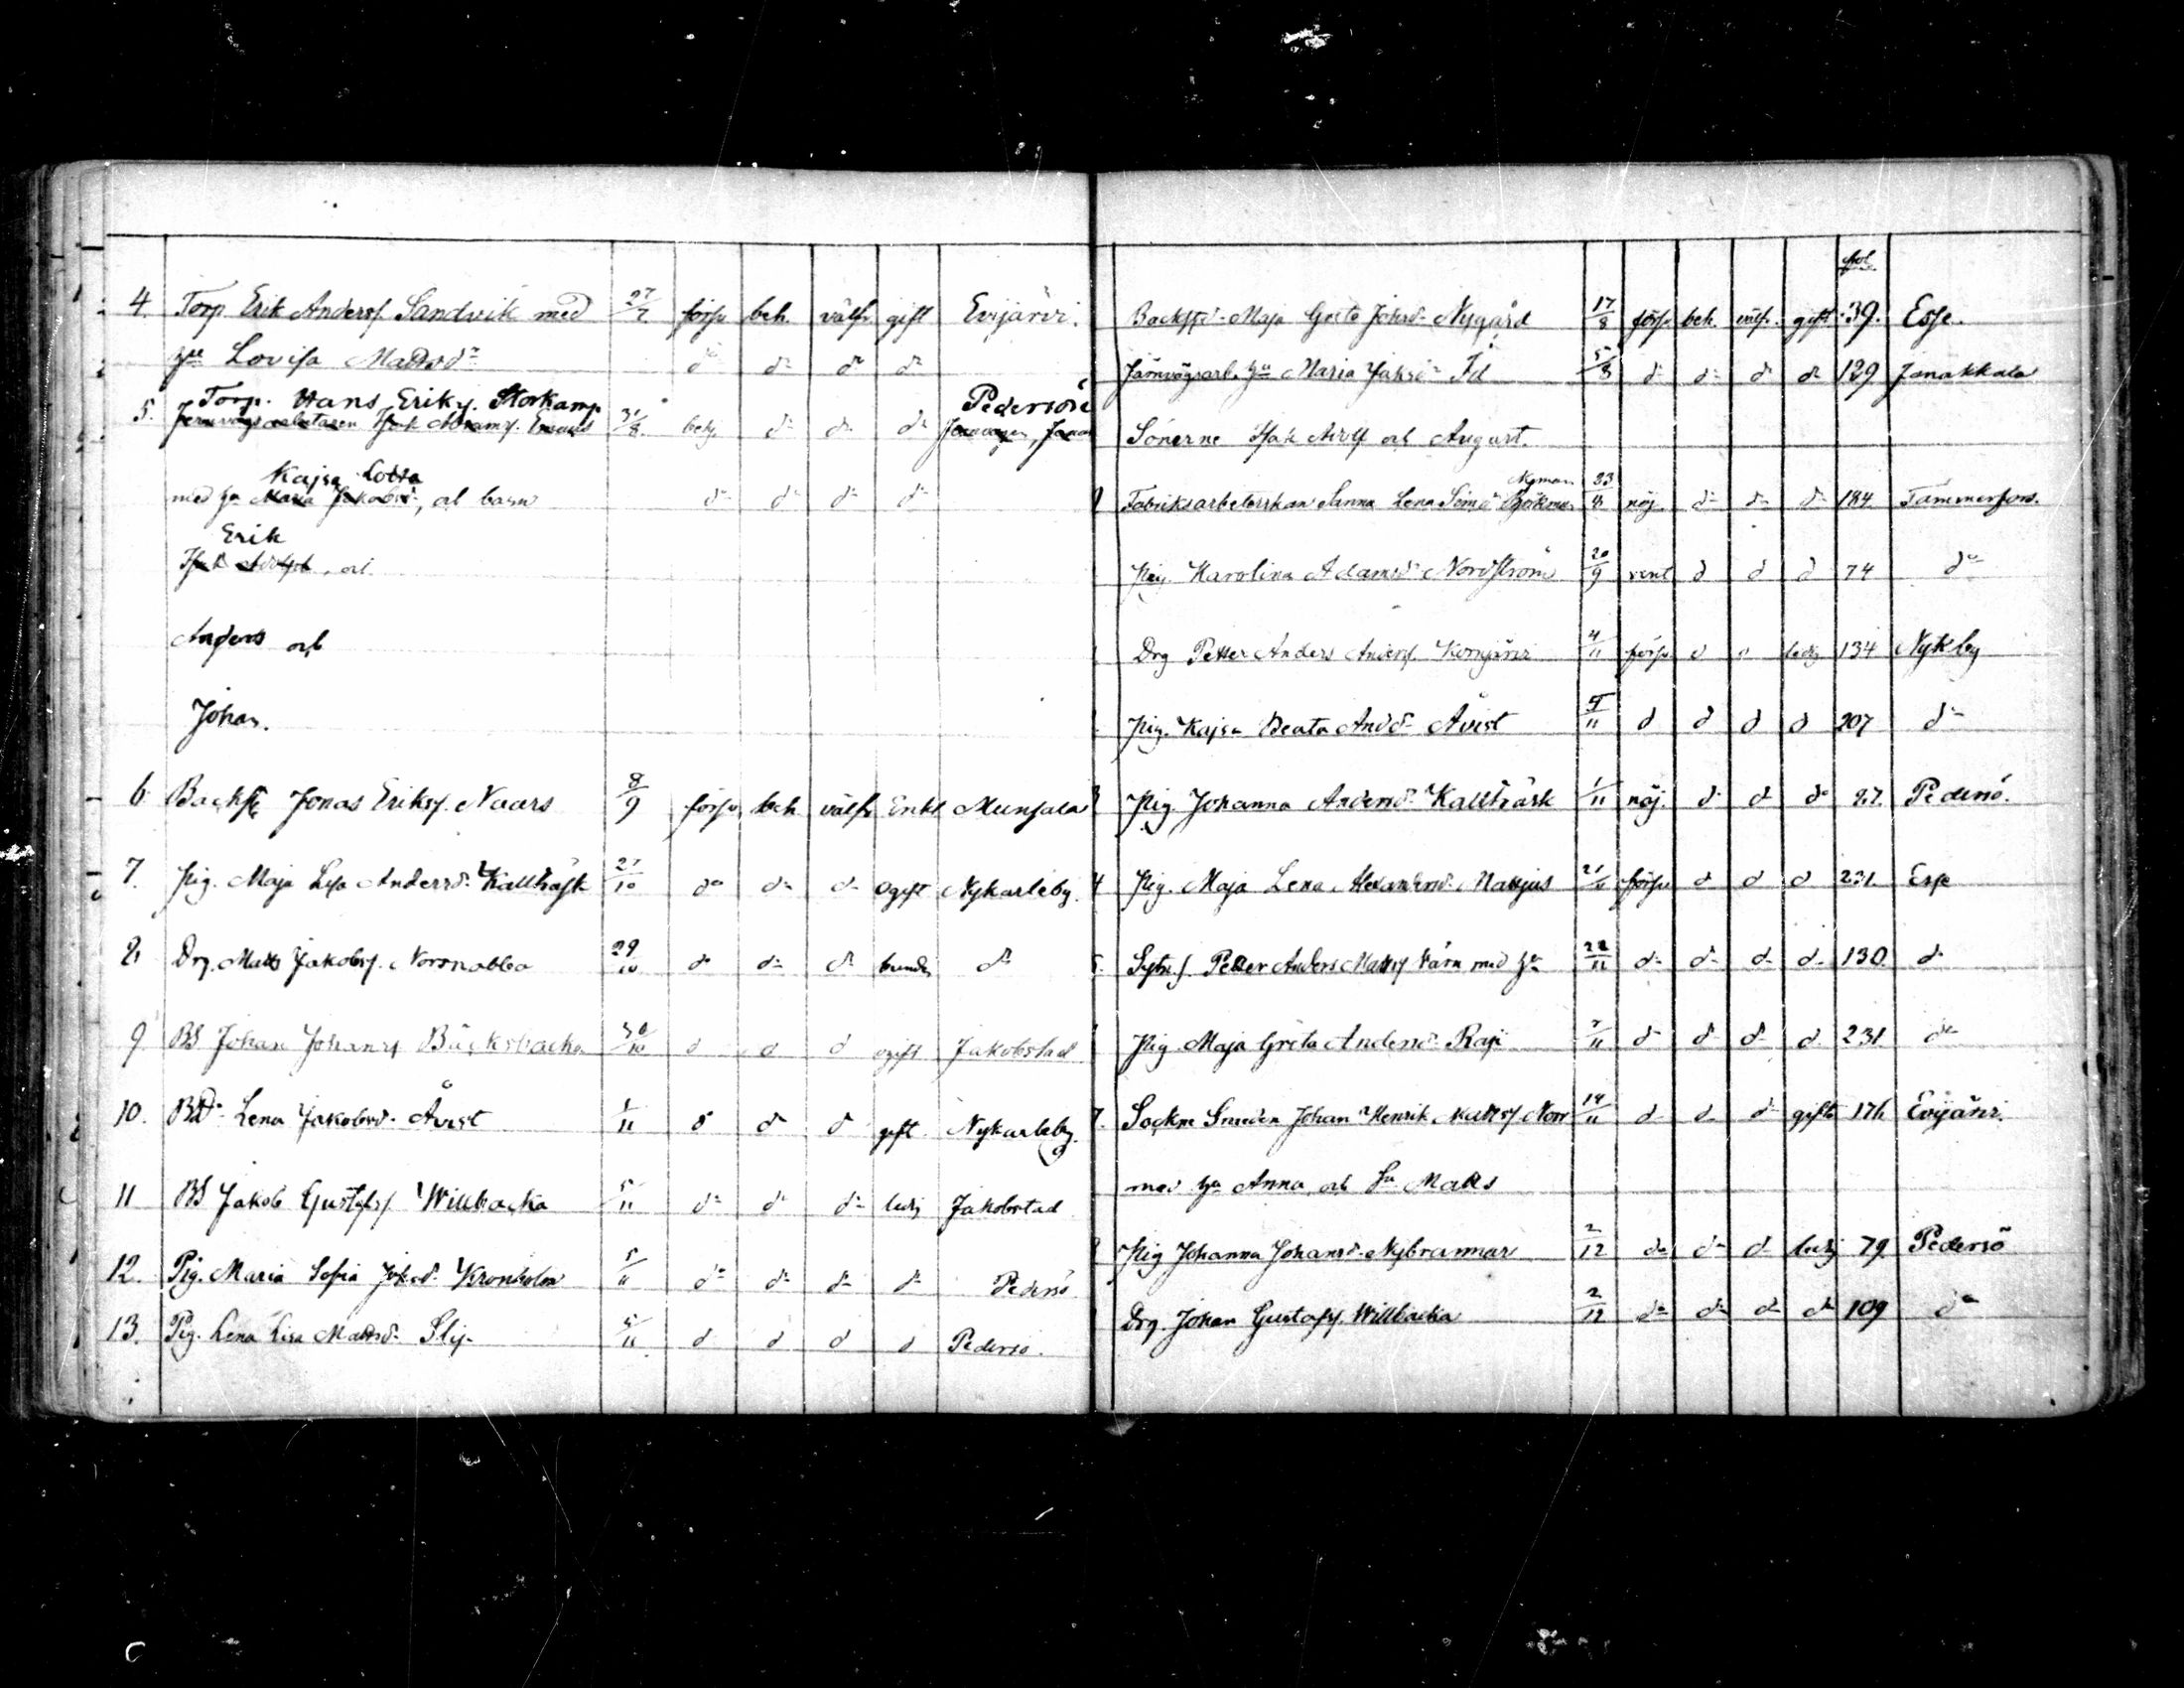 4. Torp. Erik Anderss. Sandvik med 27/7 försv. beh. välfr. gift Evijärvi.
hu Lovisa Mattsdr do do do do
Torp. Hans Eriks. Storkamp Pedersöre
5. 31/8 beh. do do do
Kajsa Lovisa
med hu Maria Jakobsdr, och barn do do do do
Erik
Isak Adolph, och
Anders och
Johan.
6 Backst. Jonas Erikss. Naars 8/9 försv. beh. välfr. Enkl. Munsala
7. Pig. Maja Lisa Andersdr Kallträsk 21/10 do do do ogift Nykarleby.
8 Drg. Matts Jakobss. Norrnabba 29/10 do do do do
9. BS Johan Johanss. Bäcksbacka 30/10 d d d ogift Jakobstad
10. BDr Lena Jakobsdr Åvist 1/11 d d d gift Nykarleby.
11 BS Jakob Gustafss. Willbacka 5/11 do do do ledig Jakobstad
12. Pig. Maria Sofia Jakobsdr Kronholm 5/11 do do do do Pedersö
13. Pig. Lena Lisa Mattsdr Slij 5/11 d d d d Pedersö.
fol.
Maja Greta Johsdr Nygård 17/8 försv. beh. välfr. gift 39. Esse.
Järnvägsarb. hu Maria Jaksdr 5/8 d do d do 129 Janakkala
Sönerne Isak Adolf och August.
Nyman
Fabriksarbeterskan Sanna Lena 23/8 nöj. do do do 184 Tammerfors.
Pig. Karolina Adamsdr Nordström 20/9 d d d 74 do
Drg Petter Anders Anderss. 4/11 försv. d d ledig 134 Nykby
Pig. Kajsa Beata Andsdr Åvist 5/11 d d d d 207 do
3 Pig. Johanna Andersdr Kallträsk 1/11 nöj. d d do 27. Pedersö.
4 Pig. Maja Lena Alexandersdr Mattjus 21/11 försv. d d d 231 Esse
5. Petter Anders Matss med hu 22/11 do do do do 130 do
Pig. Maja Greta Andersdr 7/11 do d do d 231 do
7. Sockne Smeden Johan Henrik Mattss. Norr 14/11 d d do gifta 176 Evijärvi.
med hu Anna och Sn Matts
Pig Johanna Johansdr Nybrannar 2/12 do do d ledig 79. Pedersö
Drg. Johan Gustafss. Willbacka 2/12 do do do do 109 do